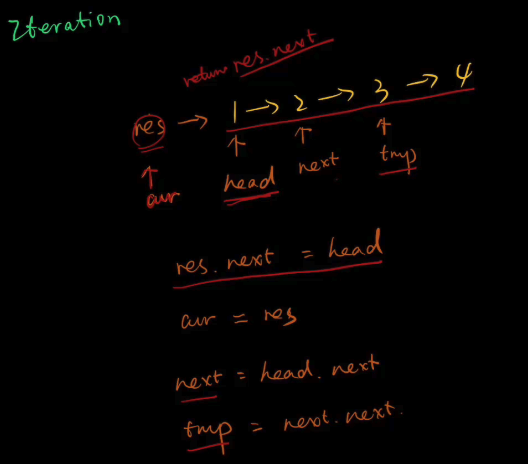 Iteration
return res.next
res → 1 → 2 → 3 → 4
↑ ↑ ↑ ↑
cur head next tmp
res.next = head
cur = res
next = head.next
tmp = next.next.